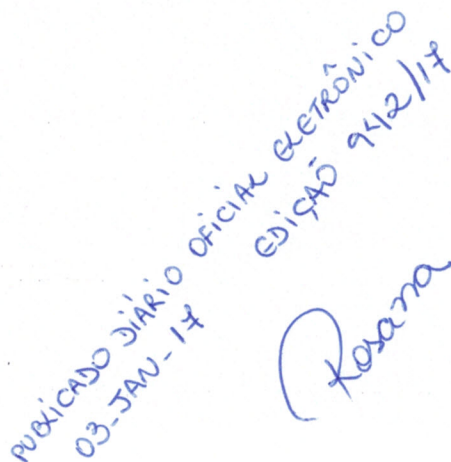 PUBLICADO DIÁRIO OFICIAL ELETRÔNICO
03-JAN-17 EDIÇÃO 942/17
Rosana